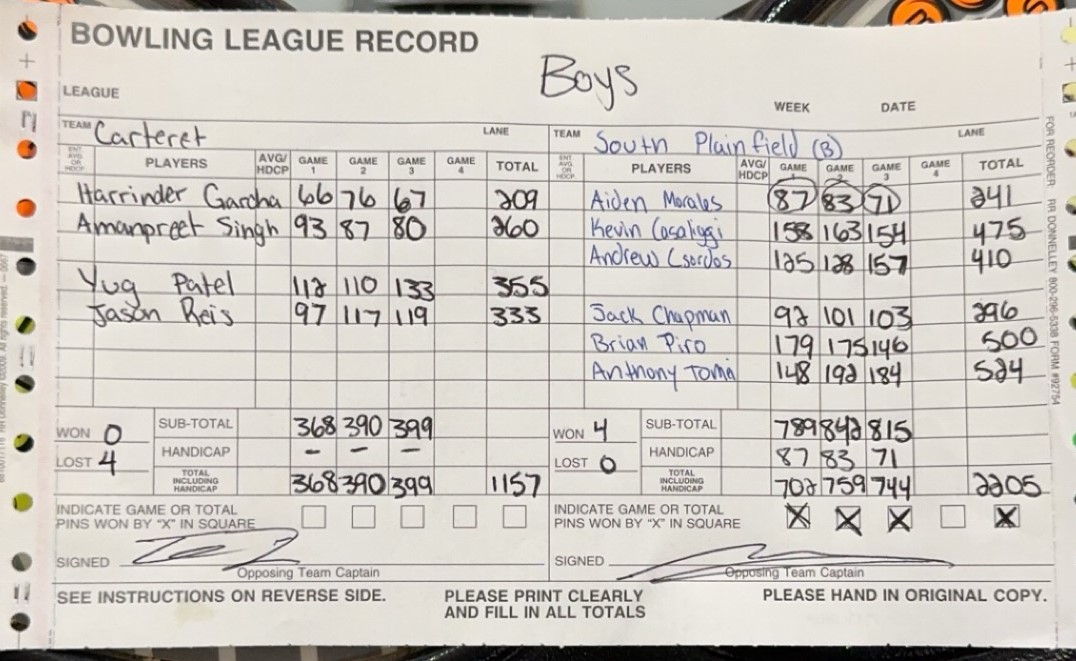 BOWLING LEAGUE RECORD
Boys
LEAGUE WEEK DATE
TEAM Carteret LANE
ENT AVG. OR HDCP. PLAYERS AVG/HDCP GAME 1 GAME 2 GAME 3 GAME 4 TOTAL
Harrinder Garcha 66 76 67 209
Amanpreet Singh 93 87 80 260
Yug Patel 112 110 133 355
Jason Reis 97 117 119 333
WON 0 SUB-TOTAL 368 390 399
LOST 4 HANDICAP - - -
TOTAL INCLUDING HANDICAP 368 390 399 1157
INDICATE GAME OR TOTAL
PINS WON BY "X" IN SQUARE
SIGNED
Opposing Team Captain
TEAM South Plainfield (B) LANE
ENT AVG. OR HDCP. PLAYERS AVG/HDCP GAME 1 GAME 2 GAME 3 GAME 4 TOTAL
Aiden Morales 87 83 71 241
Kevin Casaliggi 158 163 154 475
Andrew Csordos 125 128 157 410
Jack Chapman 92 101 103 296
Brian Piro 179 175 146 500
Anthony Toma 148 192 184 524
WON 4 SUB-TOTAL 789 842 815
LOST 0 HANDICAP 87 83 71
TOTAL INCLUDING HANDICAP 702 759 744 2205
INDICATE GAME OR TOTAL
PINS WON BY "X" IN SQUARE X X X X
SIGNED
Opposing Team Captain
SEE INSTRUCTIONS ON REVERSE SIDE.
PLEASE PRINT CLEARLY
AND FILL IN ALL TOTALS
PLEASE HAND IN ORIGINAL COPY.
FOR REORDER RR DONNELLEY 800-296-5338 FORM #92754